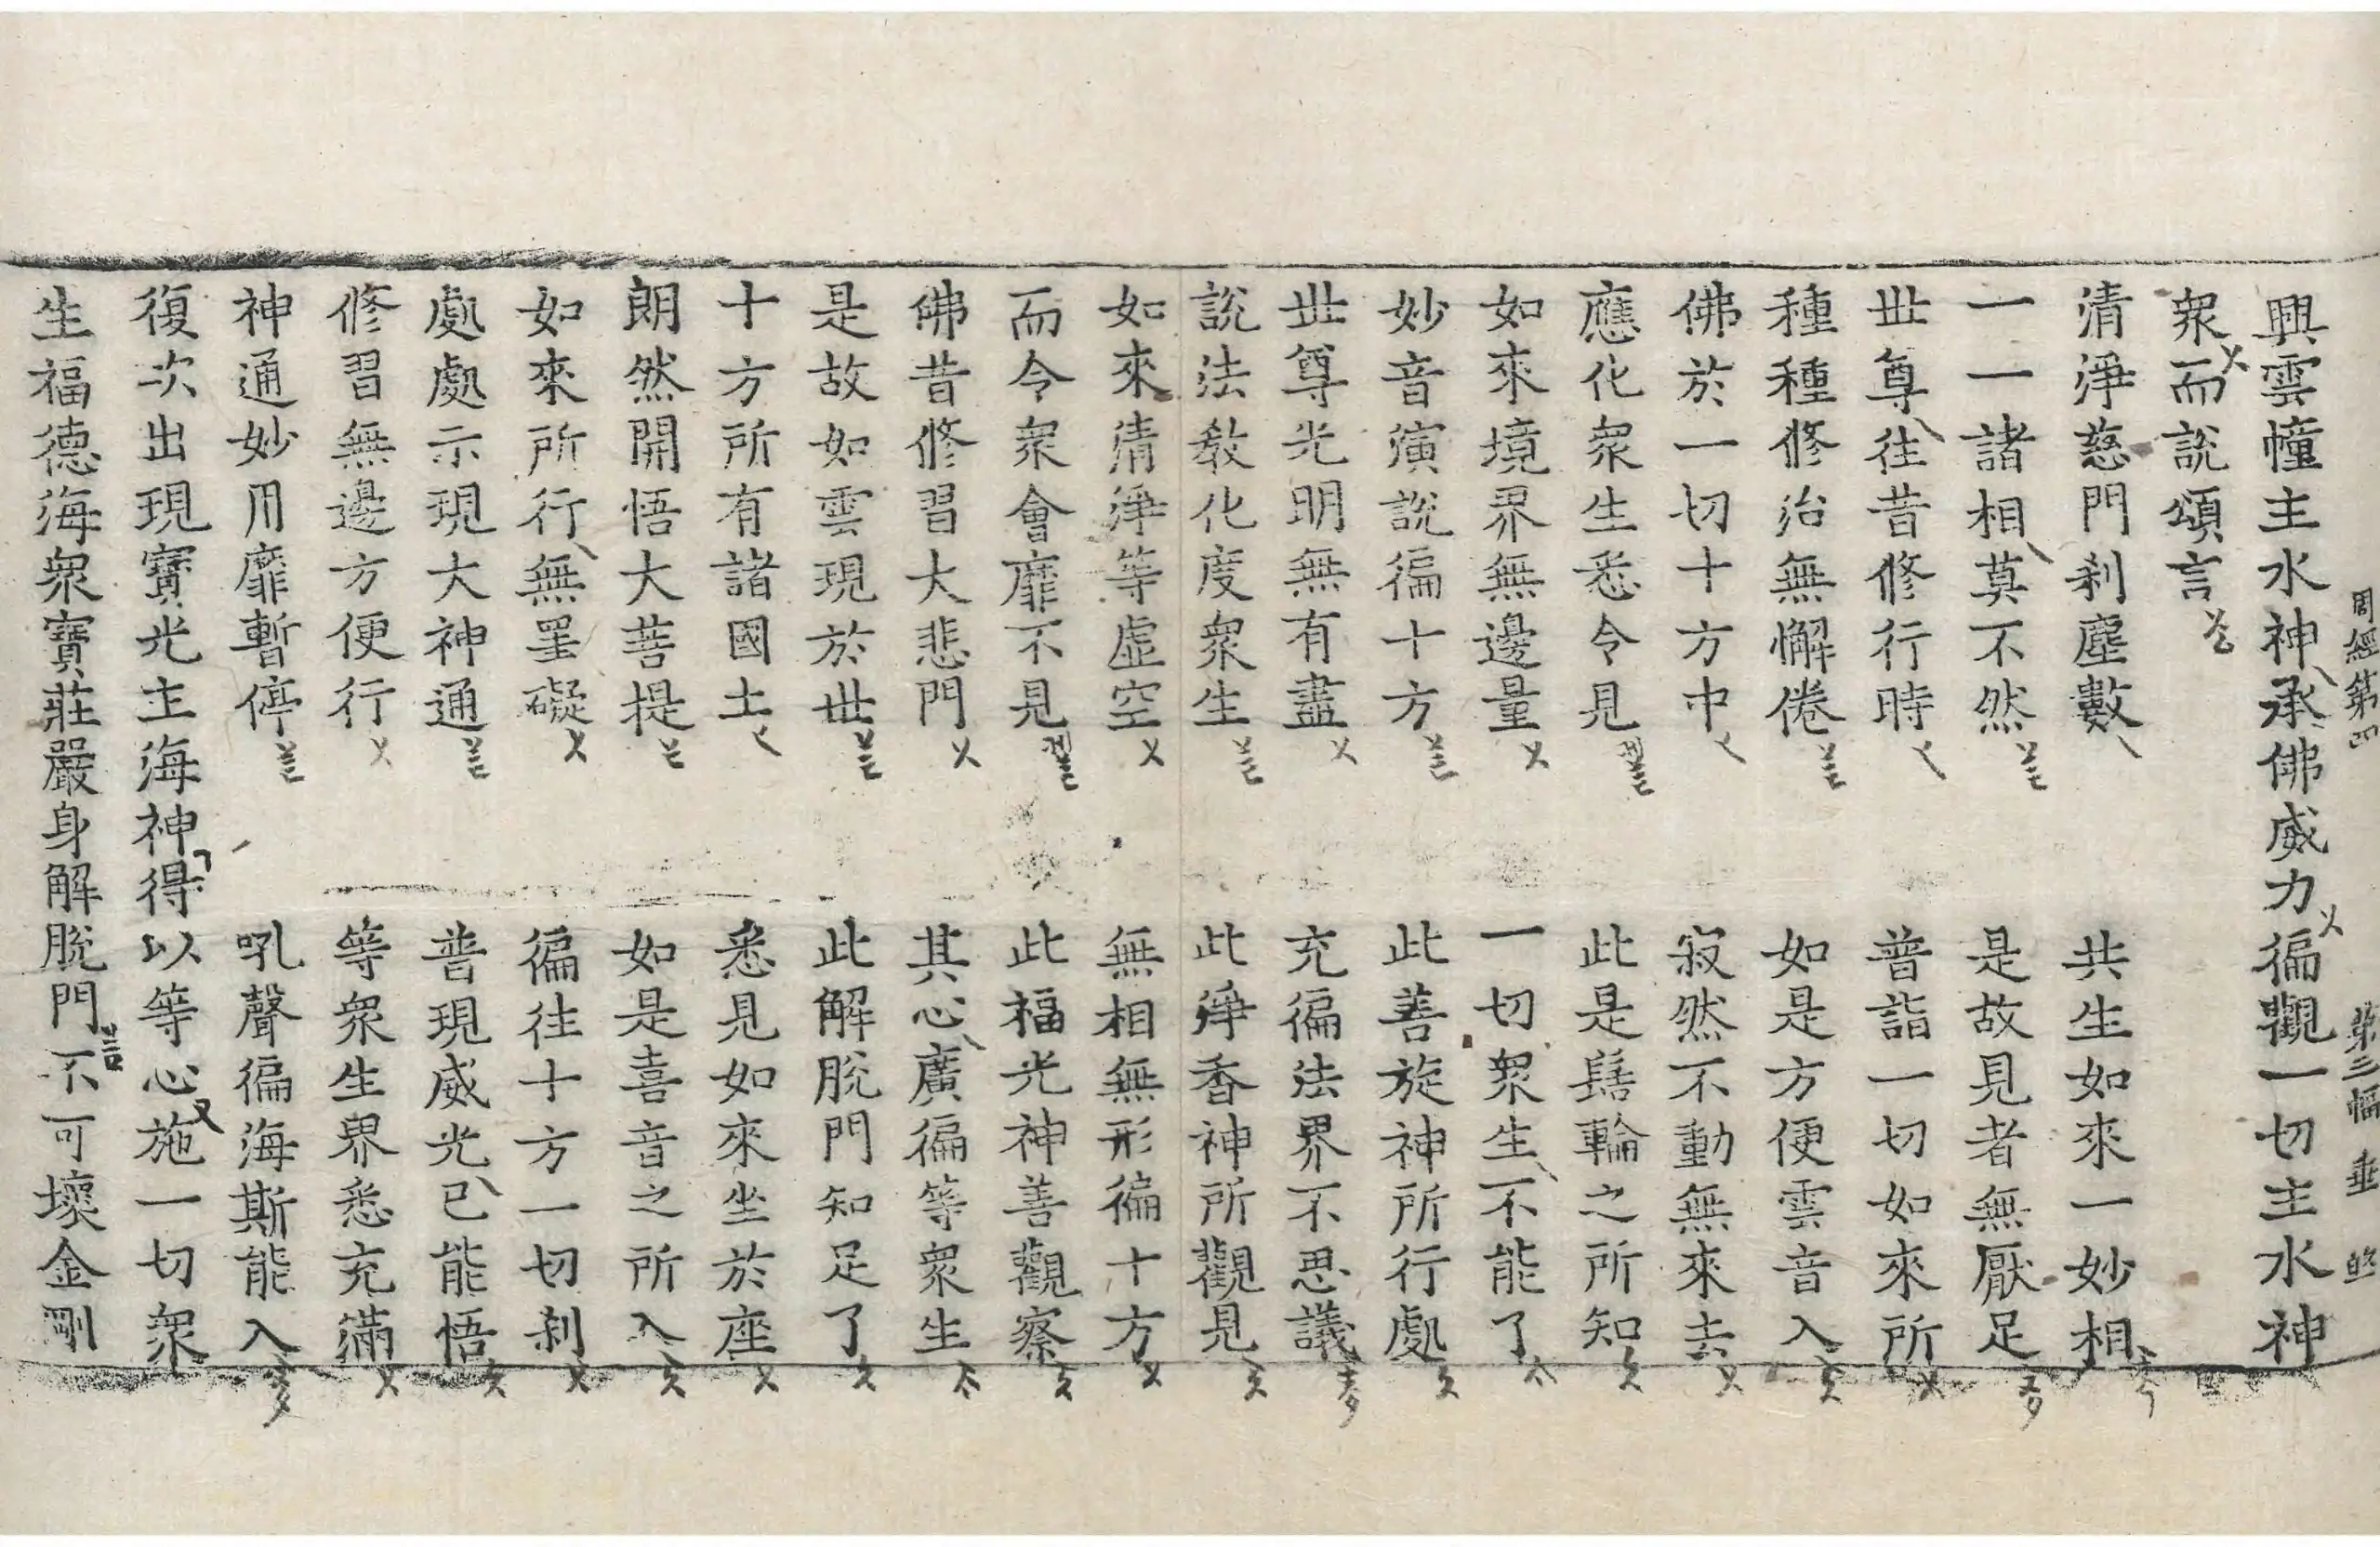 周經第四　第三幅　垂
興雲幢主水神承佛威力徧觀一切主水神
衆而說頌言
清淨慈門刹塵數　共生如來一妙相
一一諸相莫不然　是故見者無厭足
世尊往昔修行時　普詣一切如來所
種種修治無懈倦　如是方便雲音入
佛於一切十方中　寂然不動無來去
應化衆生悉令見　此是髻輪之所知
如來境界無邊量　一切衆生不能了
妙音演說徧十方　此善旋神所行處
世尊光明無有盡　充徧法界不思議
說法教化度衆生　此淨香神所觀見
如來清淨等虛空　無相無形徧十方
而令衆會靡不見　此福光神善觀察
佛昔修習大悲門　其心廣徧等衆生
是故如雲現於世　此解脫門知足了
十方所有諸國土　悉見如來坐於座
朗然開悟大菩提　如是喜音之所入
如來所行無罣礙　徧往十方一切刹
處處示現大神通　普現威光已能悟
修習無邊方便行　等衆生界悉充滿
神通妙用靡暫停　吼聲徧海斯能入
復次出現寶光主海神得以等心施一切衆
生福德海衆寶莊嚴身解脫門不可壞金剛